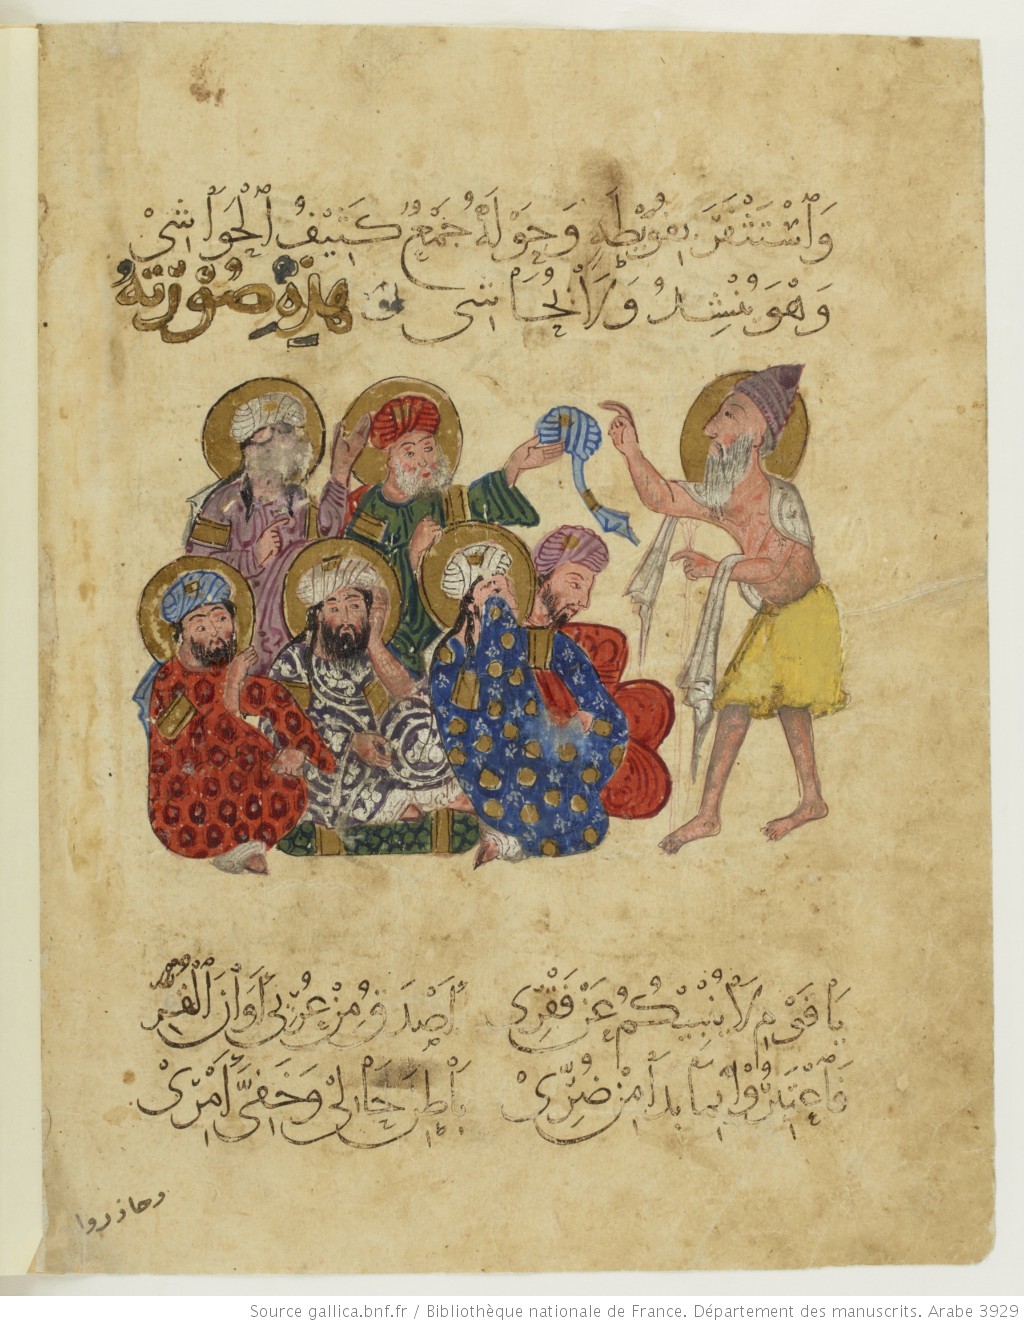 وَاسْتَثْفَرَ بِفُوَيْطَةٍ وَحَوْلَهُ جَمْعٌ كَثِيْفُ الْحَوَاشِيْ
وَهْوَ يُنْشِدُ وَلَا يُحَاشِي هَذِهِ صُوْرَتُهُ
يَا قَوْمِ لَا يُنْبِيْكُمُ عَنْ فَقْرِي أَصْدَقُ مِنْ عُرْيِي أَوَانَ الْقُرِّ
فَاعْتَبِرُوْا بِمَا بَدَا مِنْ ضُرِّيْ بَاطِنَ حَالِيْ وَخَفِيَّ أَمْرِيْ
وحاذروا
Source gallica.bnf.fr / Bibliothèque nationale de France. Département des manuscrits. Arabe 3929